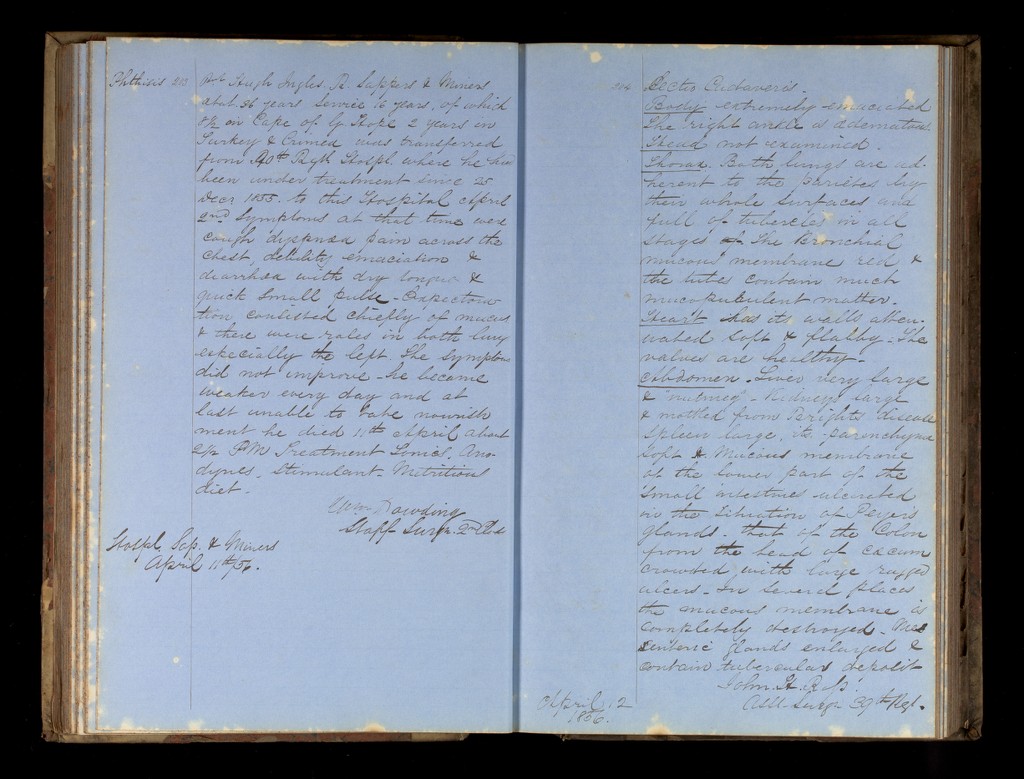 Phthisis 213 Pte Hugh Ingles, R. Sappers & Miners
ætat 36 years Service 16 years, of which
8½ on Cape of G Hope 2 years in
Turkey & Crimea was transferred
from 90th Regt Hospl. where he had
been under treatment since 25
Decr 1855. to this Hospital April
2nd Symptoms at that time were
cough dyspnœa pain across the
chest, debility emaciation &
diarrhœa with dry tongue &
quick small pulse - Expectora
tion consisted chiefly of mucus
& there were rales in both lung
especially the left The symptoms
did not improve he became
weaker every day and at
last unable to take nourish
ment he died 11th April about
PM Treatment Tonics, Ano-
dynes, Stimulant - Nutritious
diet.
Wm Dowding
Staff Surgn. 2nd Class
Hospl. Sap. & Miners
April 11th/56.
214 Sectio Cadaveris.
Body extremely emaciated
The right ankle is œdematous.
Head not examined.
Thorax. Both lungs are ad-
herent to the parietes by
their whole surfaces and
full of tubercles in all
stages The Bronchial
mucous membrane red &
the tubes contain much
mucopurulent matter.
Heart has its walls atten-
uated soft & flabby - The
valves are healthy -
Abdomen. Liver very large
& "nutmeg" - Kidneys large
& mottled from Brights disease
Spleen large, its parenchyma
soft & Mucous membrane
of the lower part of the
small intestines ulcerated
in the situation of Peyers
glands - that of the Colon
from the head of cæcum
crowded with large ragged
ulcers - In several places
the mucous membrane is
completely destroyed - Mes
enteric glands enlarged &
contain tubercular deposit
John H
Asst Surgn 39th Regt.
April 12
1856.